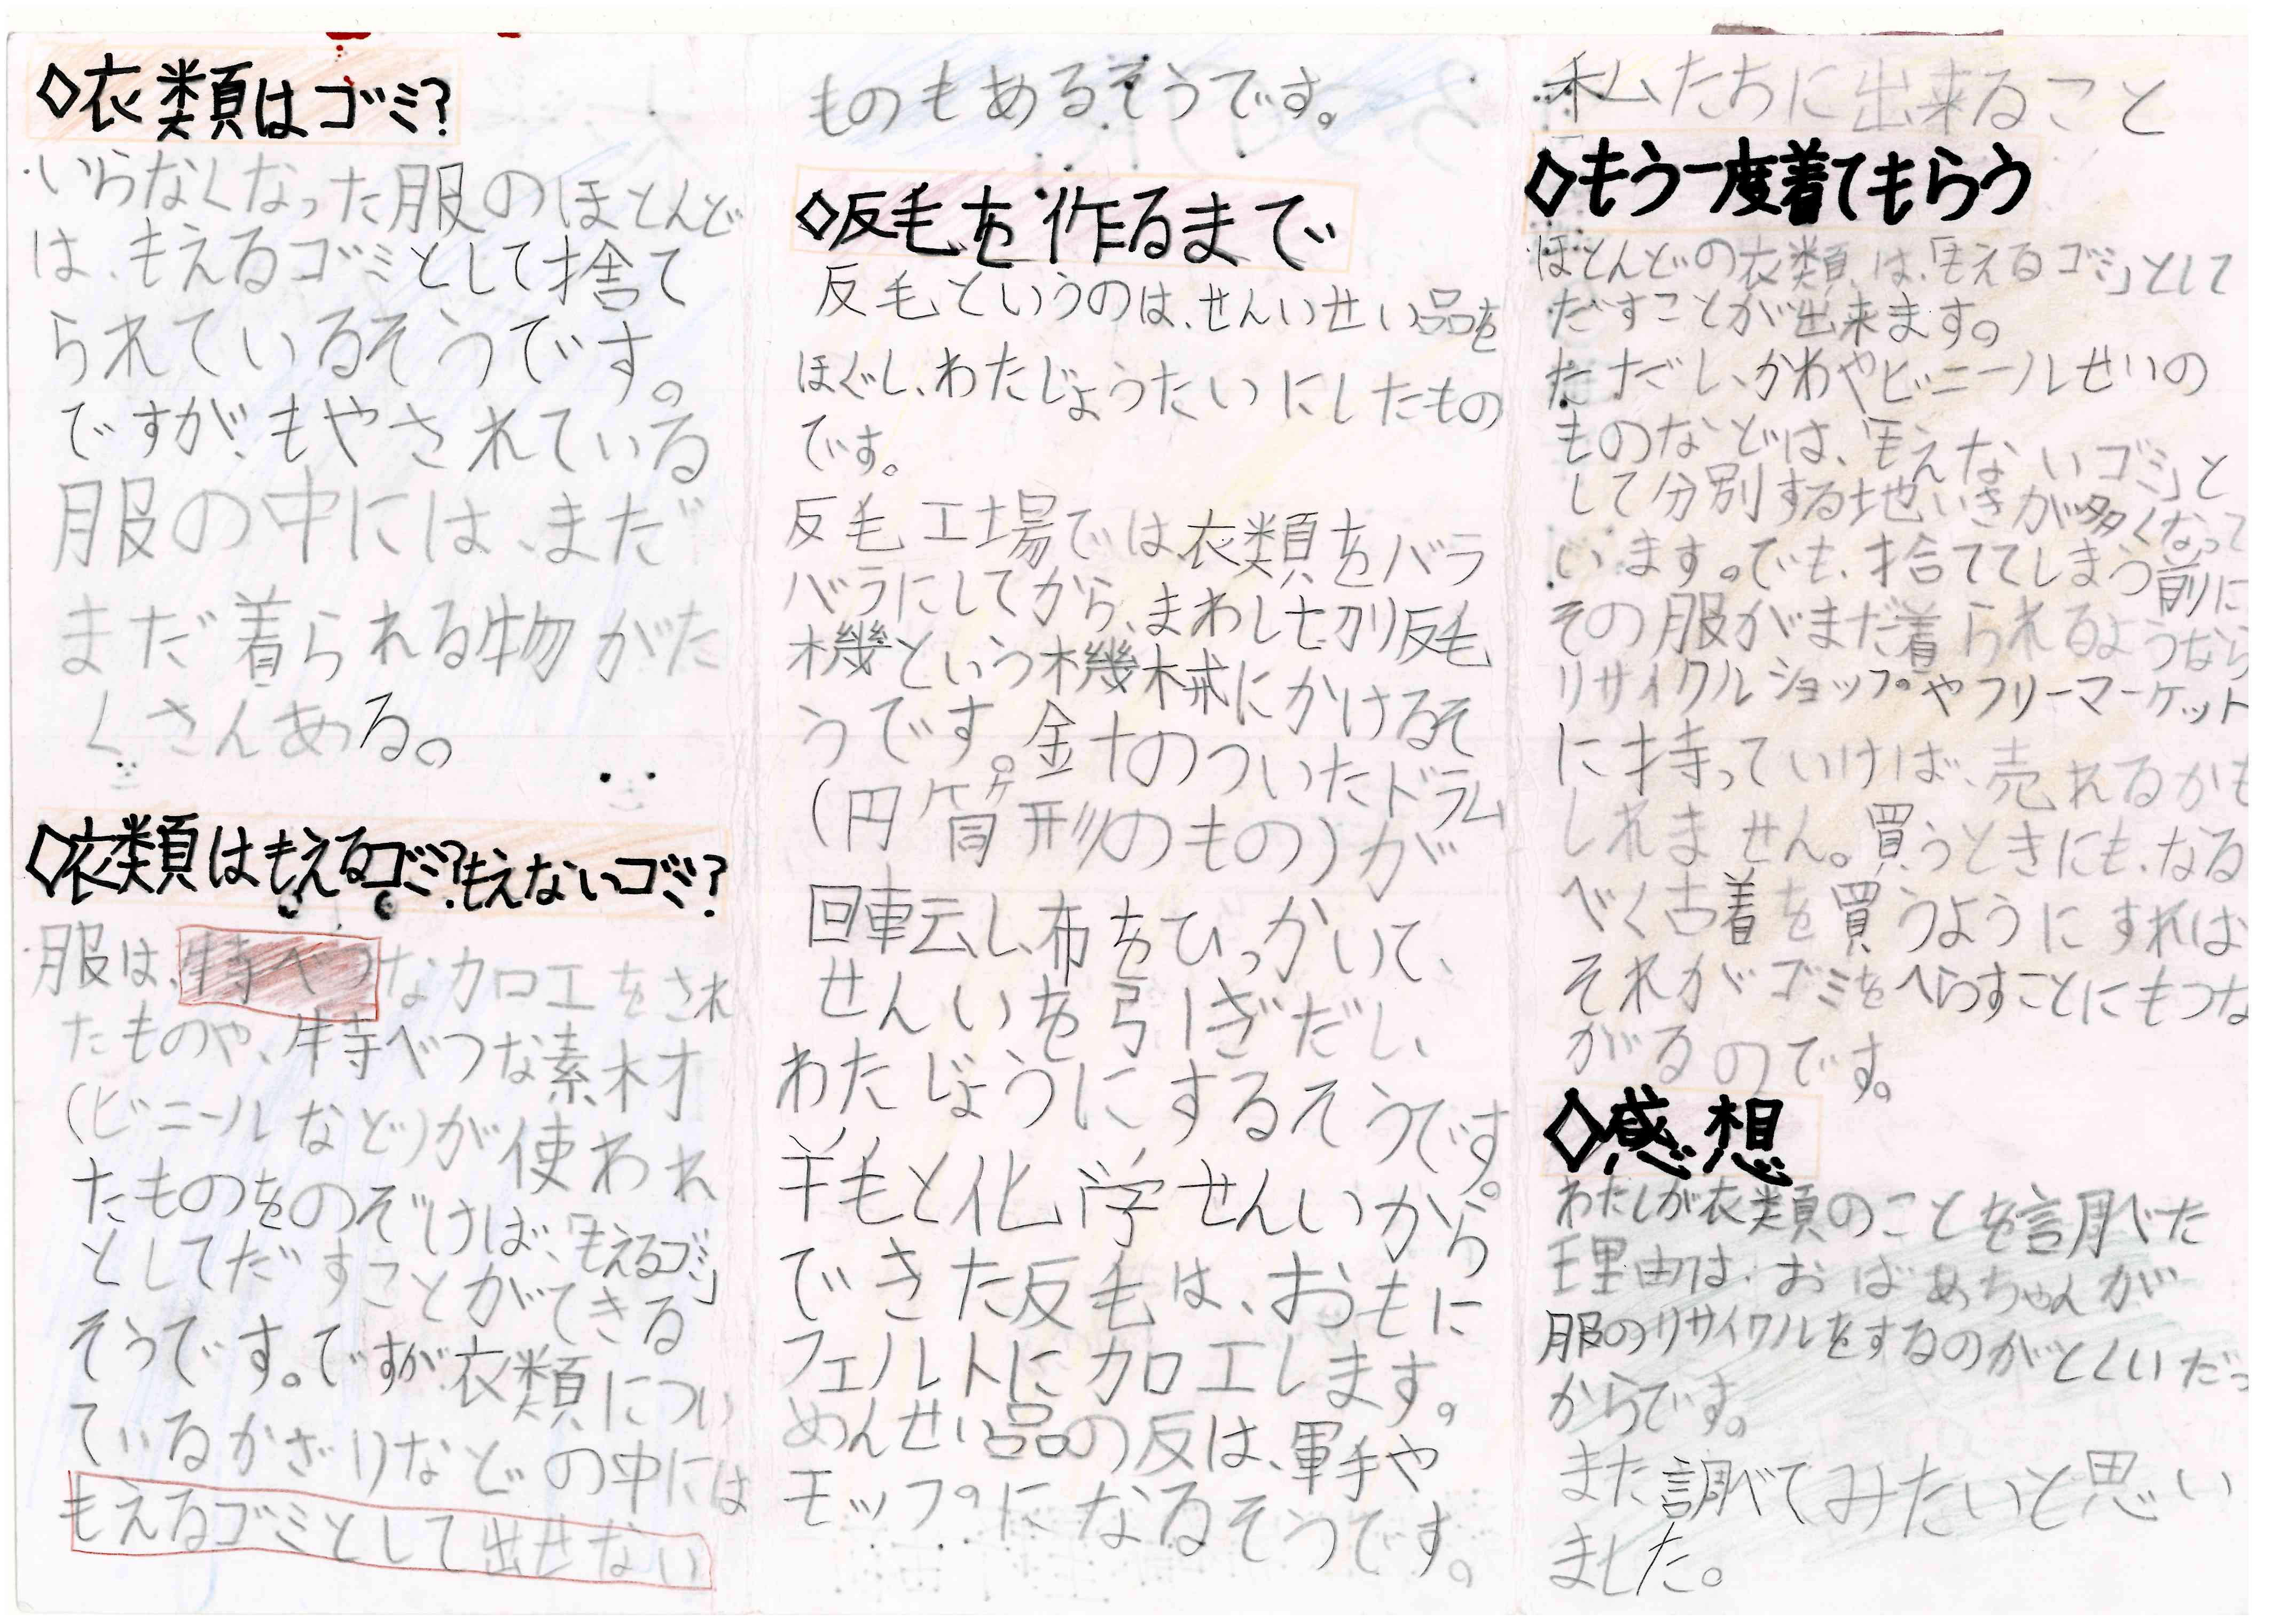 ◇衣類はゴミ?
いらなくなった服のほとんど
は、もえるゴミとして捨て
られているそうです。
ですが、もやされている
服の中には、まだ
まだ着られる物がた
くさんある。
◇衣類はもえるゴミ?もえないゴミ?
服は、特べつな加工をされ
たものや、特べつな素材
(ビニールなど)が使われ
たものをのぞけば、「もえるゴミ」
としてだすことができる
そうです。ですが、衣類につい
ているかざりなどの中には
もえるゴミとして出せない
ものもあるそうです。
◇反毛を作るまで
反毛というのは、せんいせい品を
ほぐし、わたじょうたいにしたもの
です。
反毛工場では衣類をバラ
バラにしてから、まわし切り反毛
機という機械にかけるそ
うです。金十のついたドラム
(円筒形のもの)が
回転し、布をひっかいて、
せんいを引ぎだし、
わたじょうにするそうです。
羊毛と化学せんいから
できた反毛は、おもに
フェルトに加工します。
めんせい品の反は、軍手や
モップになるそうです。
私たちに出来ること
◇もう一度着てもらう
ほとんどの衣類は、「もえるゴミ」として
だすことが出来ます。
ただし、かわやビニールせいの
ものなどは、「もえないゴミ」と
して分別する地いきが多くなって
います。でも、捨ててしまう前に
その服がまだ着られるようなら
リサイクルショップやフリーマーケット
に持っていけば、売れるかも
しれません。買うときにも、なる
べく古着を買うようにすれば
それがゴミをへらすことにもつな
がるのです。
◇感想
わたしが衣類のことを調べた
理由は、おばあちゃんが
服のリサイクルをするのがとくいだっ
からです。
また調べてみたいと思い
ました。